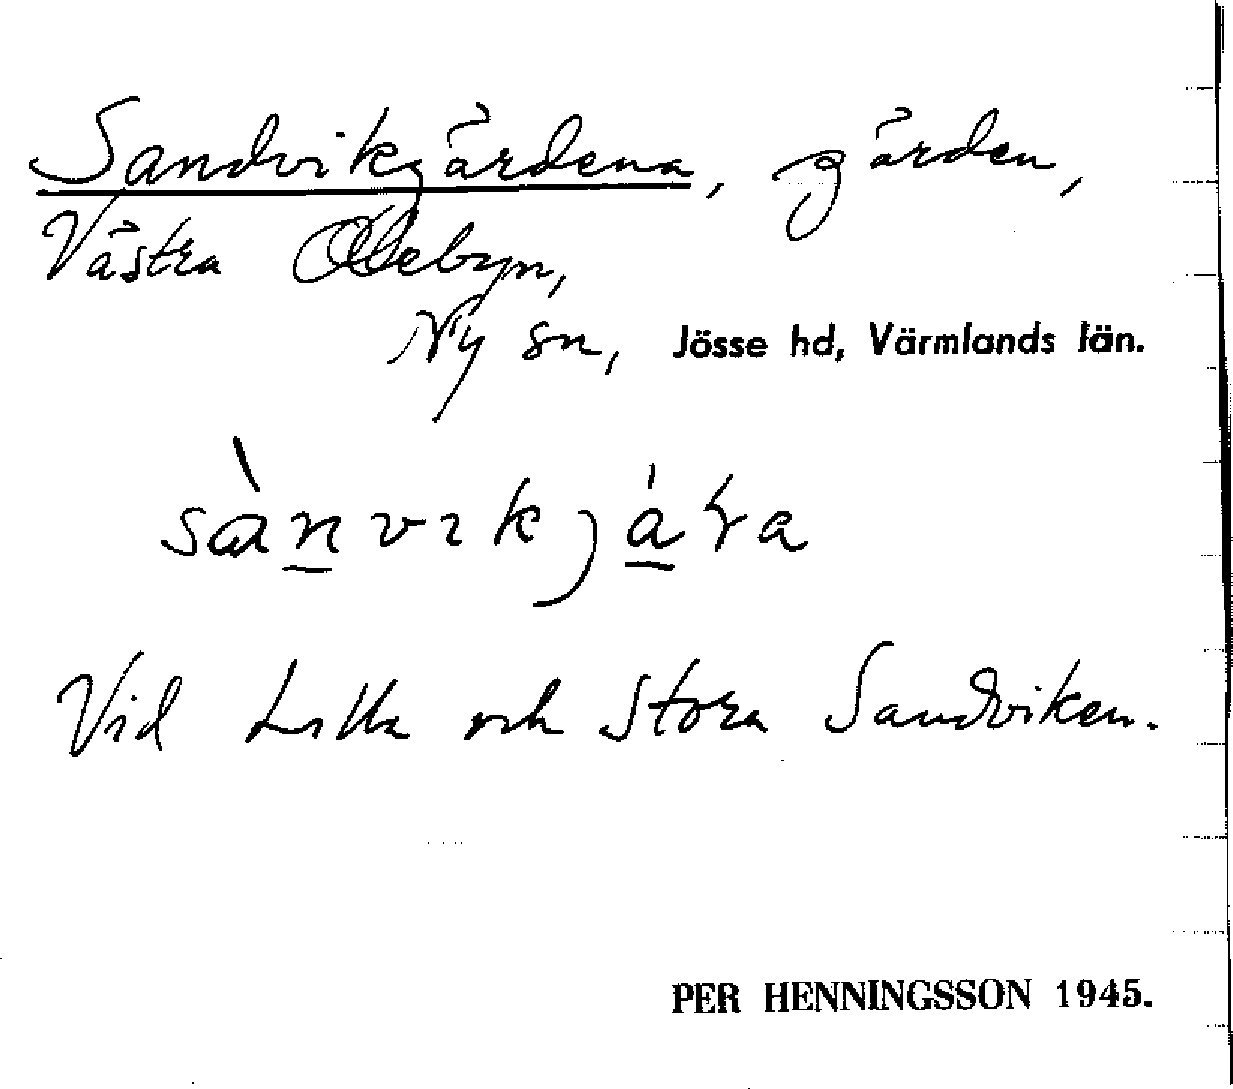 Sandvikgärdena, gärden,
Västra Ollebyn,
Ny sn, Jösse hd, Värmlands län.
Vid Lilla och Stora Sandviken.
PER HENNINGSSON 1945.